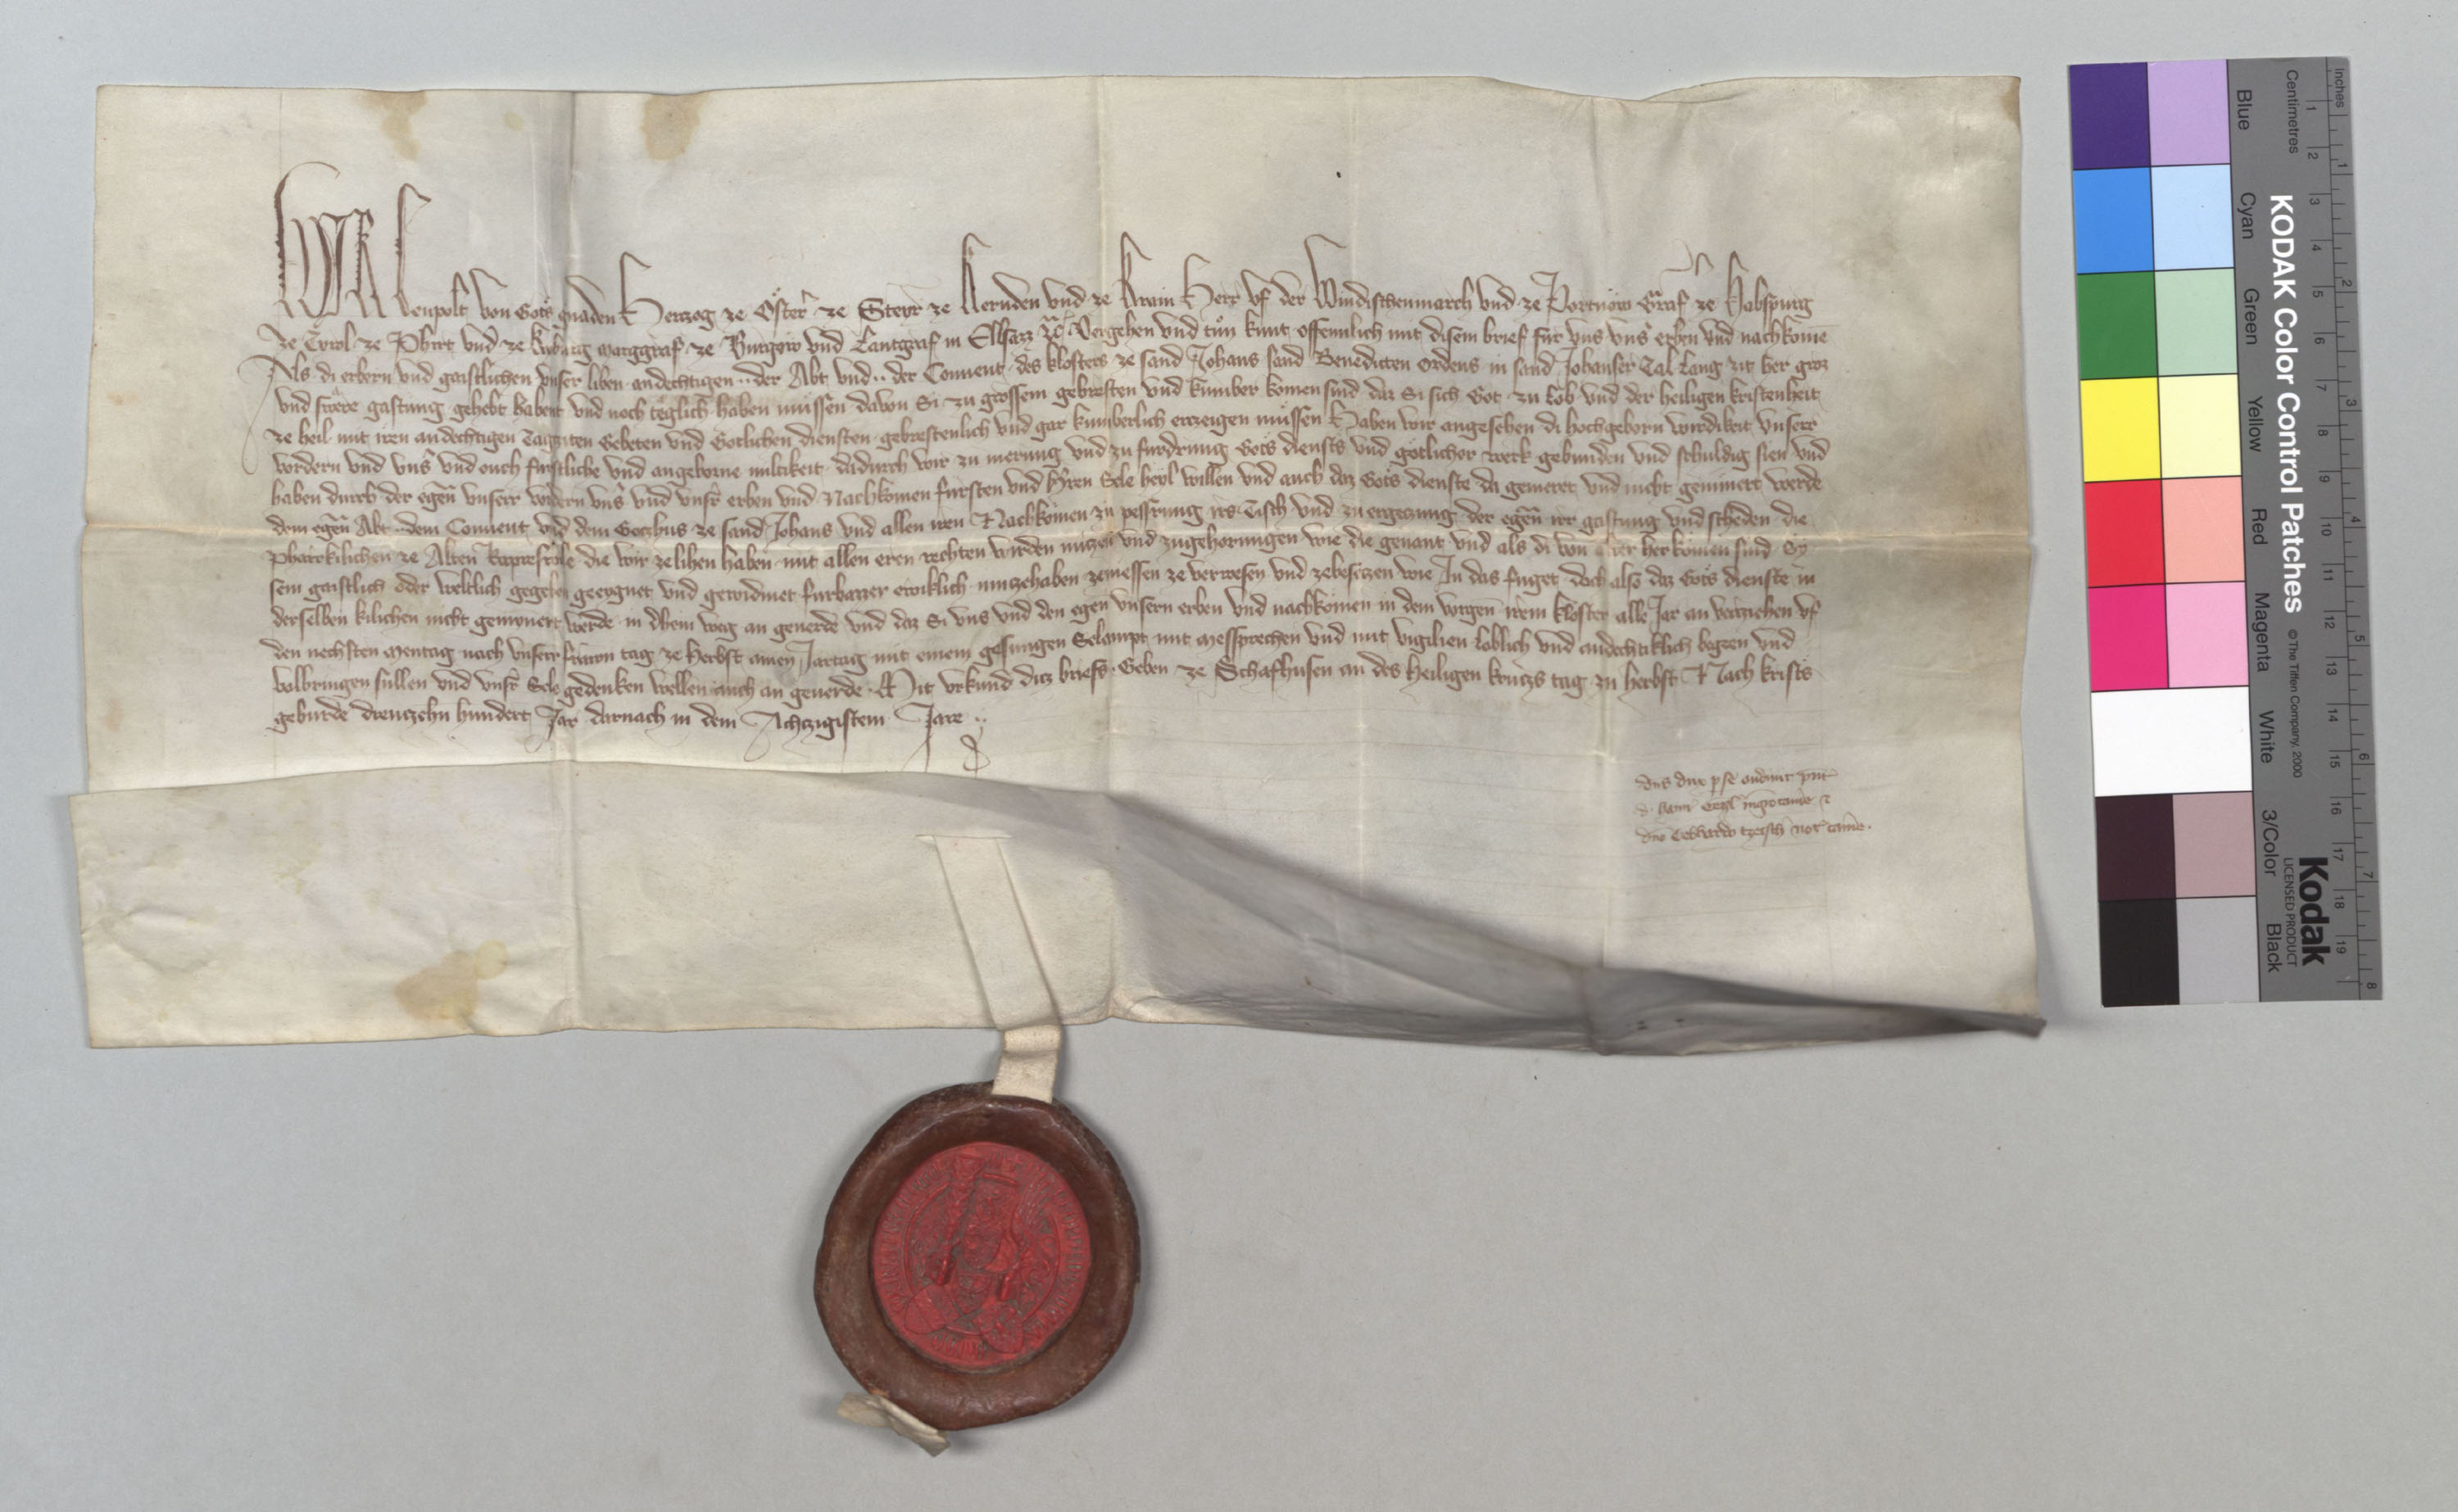 Wir Leupolt von Gots gnaden Hertzog ze Osterr ze Steyr ze Kernden und ze Krain Herr uf der Windischenmarch und ze Portnow Graf ze Habspurg
ze Tyrol ze Phirt und ze Kyburg marggraf ze Burgow und Lantgraf in Elsazz Veriehen und tůn kunt offennlich mit disem brief fur uns uns erben und nachkome
Als di erbern und gaistlichen unser liben andechtigen ·· der Abt und ·· der Convent des klosters ze sand Johans sand Benedicten ordens in sand Johanser Tal lang zit her groz
und swere gastung gehebt habent und noch teglich haben mussen davon Si zu grossem gebresten und kumber komen sind daz Si sich Got zu lob und der heiligen kristenheit
ze heil mit iren andechtigen Tagziten Gebeten und Gotlichen diensten gebrestenlich und gar kumberlich erzeigen mussen Haben wir angesehen di hochgeborn wirdikeit unserr
vordern und uns und ouch furstliche und angeborne miltikeit dadurch wir zu merung und zu furdrung Gots diensts und gotlicher werk gebunden und schuldig sien und
haben durch der egen unserr vordern uns und unsr erben und Nachkomen fursten und hren Sele heyl willen und auch daz Gots dienste da gemeret und nicht geminert werde
dem egen Abt ·· dem Convent und dem Gotzhus ze sand Johans und allen iren Nachkomen zu pessrung irs Tisch und zu ergetzung der egen irr gastung und scheden die
pharrkilichen ze Alten die wir ze lihen haben mit allen eren rechten wirden nutzen und zugehorungen wie die genant und als di von alter herkomen sind Sy
sein gaistlich oder weltlich gegeben geeygnet und gewidmet furbazzer ewiklich inntzehaben zeniessen ze verwesen und zebesitzen wie In das fuget doch also daz Gots dienste in
derselben kilichen nicht geminnert werde in dhein weg an geuerde und daz Si uns und den egen unsern erben und nachkomen in dem vorgen irem kloster alle Jar an verziehen uf
den nechsten mentag nach unserr frawn tag ze herbst ainen Jartag mit einem gesungen Selampt mit messprechen und mit vigilien loblich und andechtiklich began und
volbringen sullen und unsr Sele gedenken wellen auch an geuerde Mit urkund ditz briefs · Geben ze Schafhusen an des Heiligen krutzs tag zu herbst Nach krists
geburde dreutzehn hundert Jar darnach in dem Achtzigistem Jare ··
dns dux p se audivit
magro camere
dno not camere ·
KODAK Color Control Patches © The Tiffen Company, 2000
Kodak
LICENSED PRODUCT
Inches 1 2 3 4 5 6 7 8
Centimetres 1 2 3 4 5 6 7 8 9 10 11 12 13 14 15 16 17 18 19
Blue Cyan Green Yellow Red Magenta White 3/Color Black